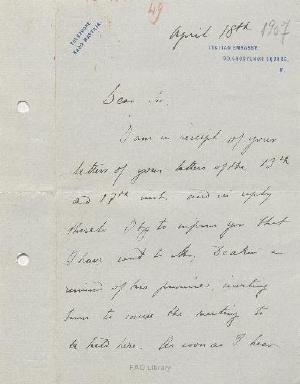 49
TELEPHONE
April 18th 1907
ITALIAN EMBASSY,
20, GROSVENOR SQUARE,
W.
Dear Sir,
I am in receipt of your
letters of your letters of the 13th
and 17th inst, and in reply
thereto I beg to inform you that
I have sent to Mr. Deakin a
reminder of his promise, inviting
him to convoke the meeting to
be held here. As soon as I hear
FAO Library